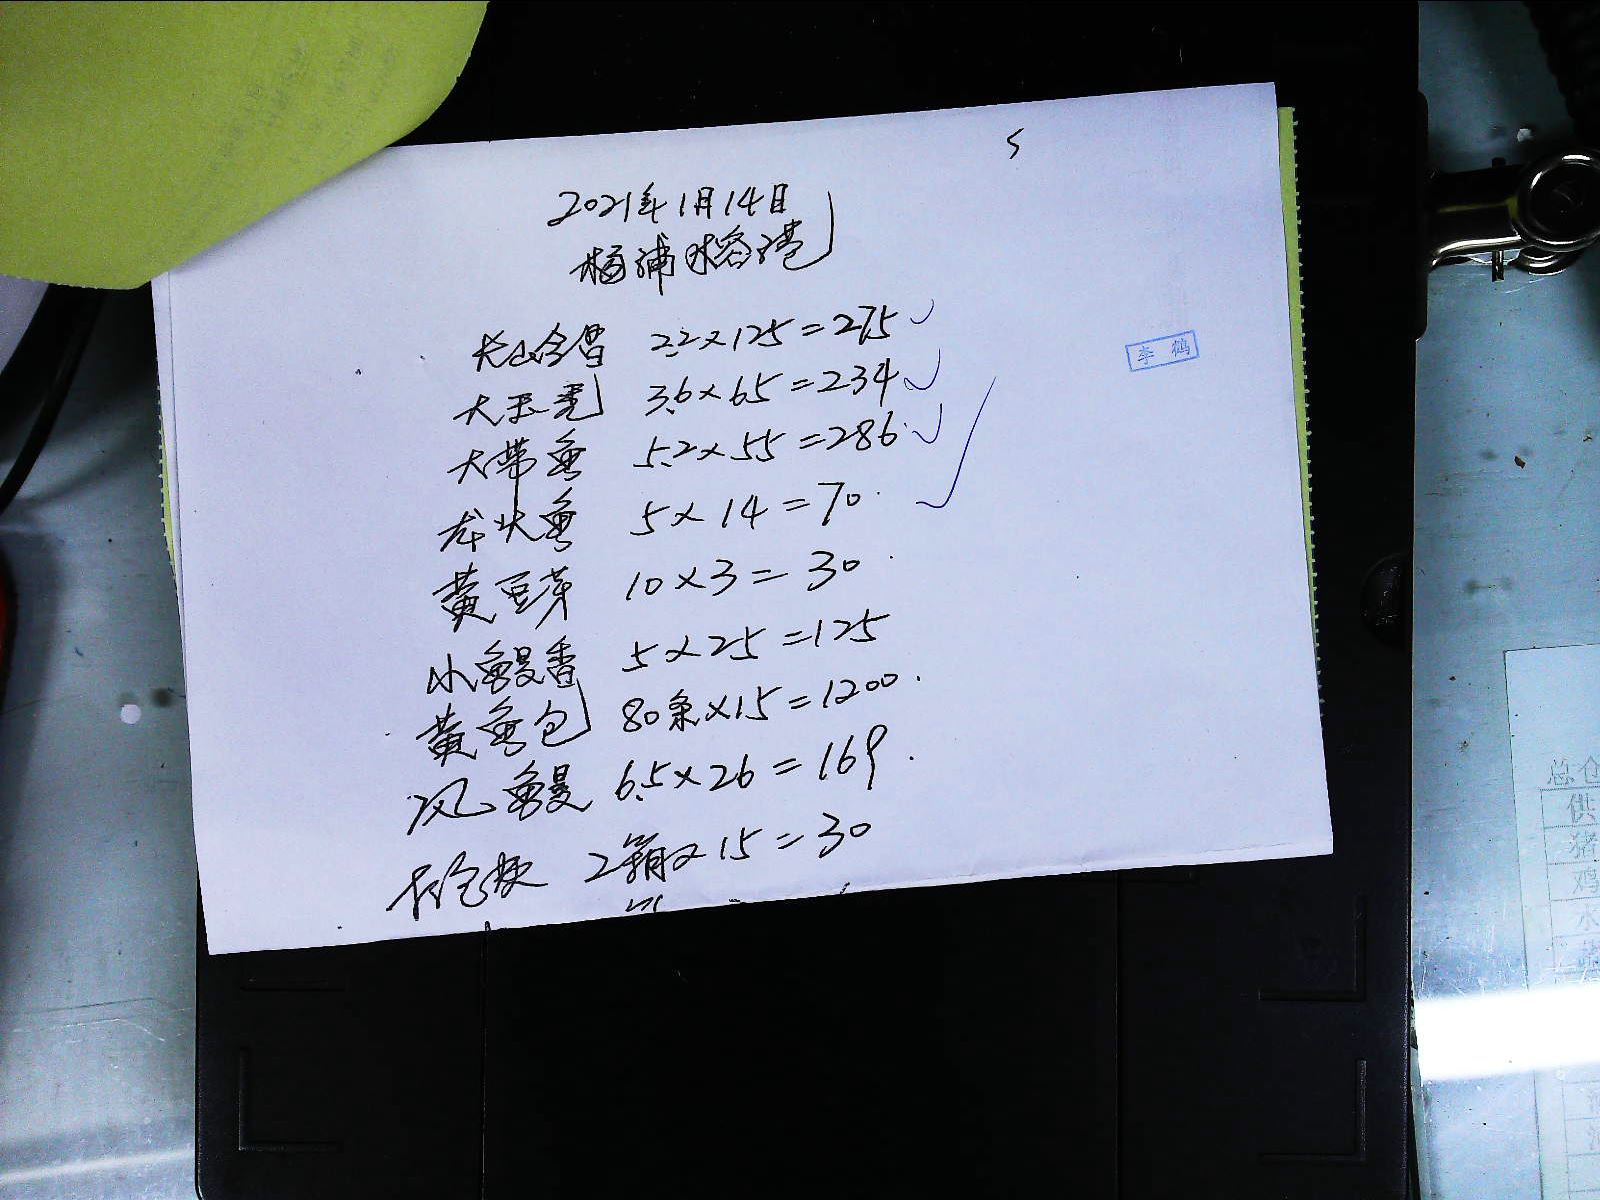 5
2021年1月14日
杨浦味榕港
2.2×125=275
李鹤
大玉秃 3.6×65=234
大带鱼 5.2×55=286
龙头鱼 5×14=70
黄豆芽 10×3=30
小鳗香 5×25=125
黄鱼包 80条×15=1200
风鳗 6.5×26=169
2箱×15=30
总仓
供
猪
鸡
水